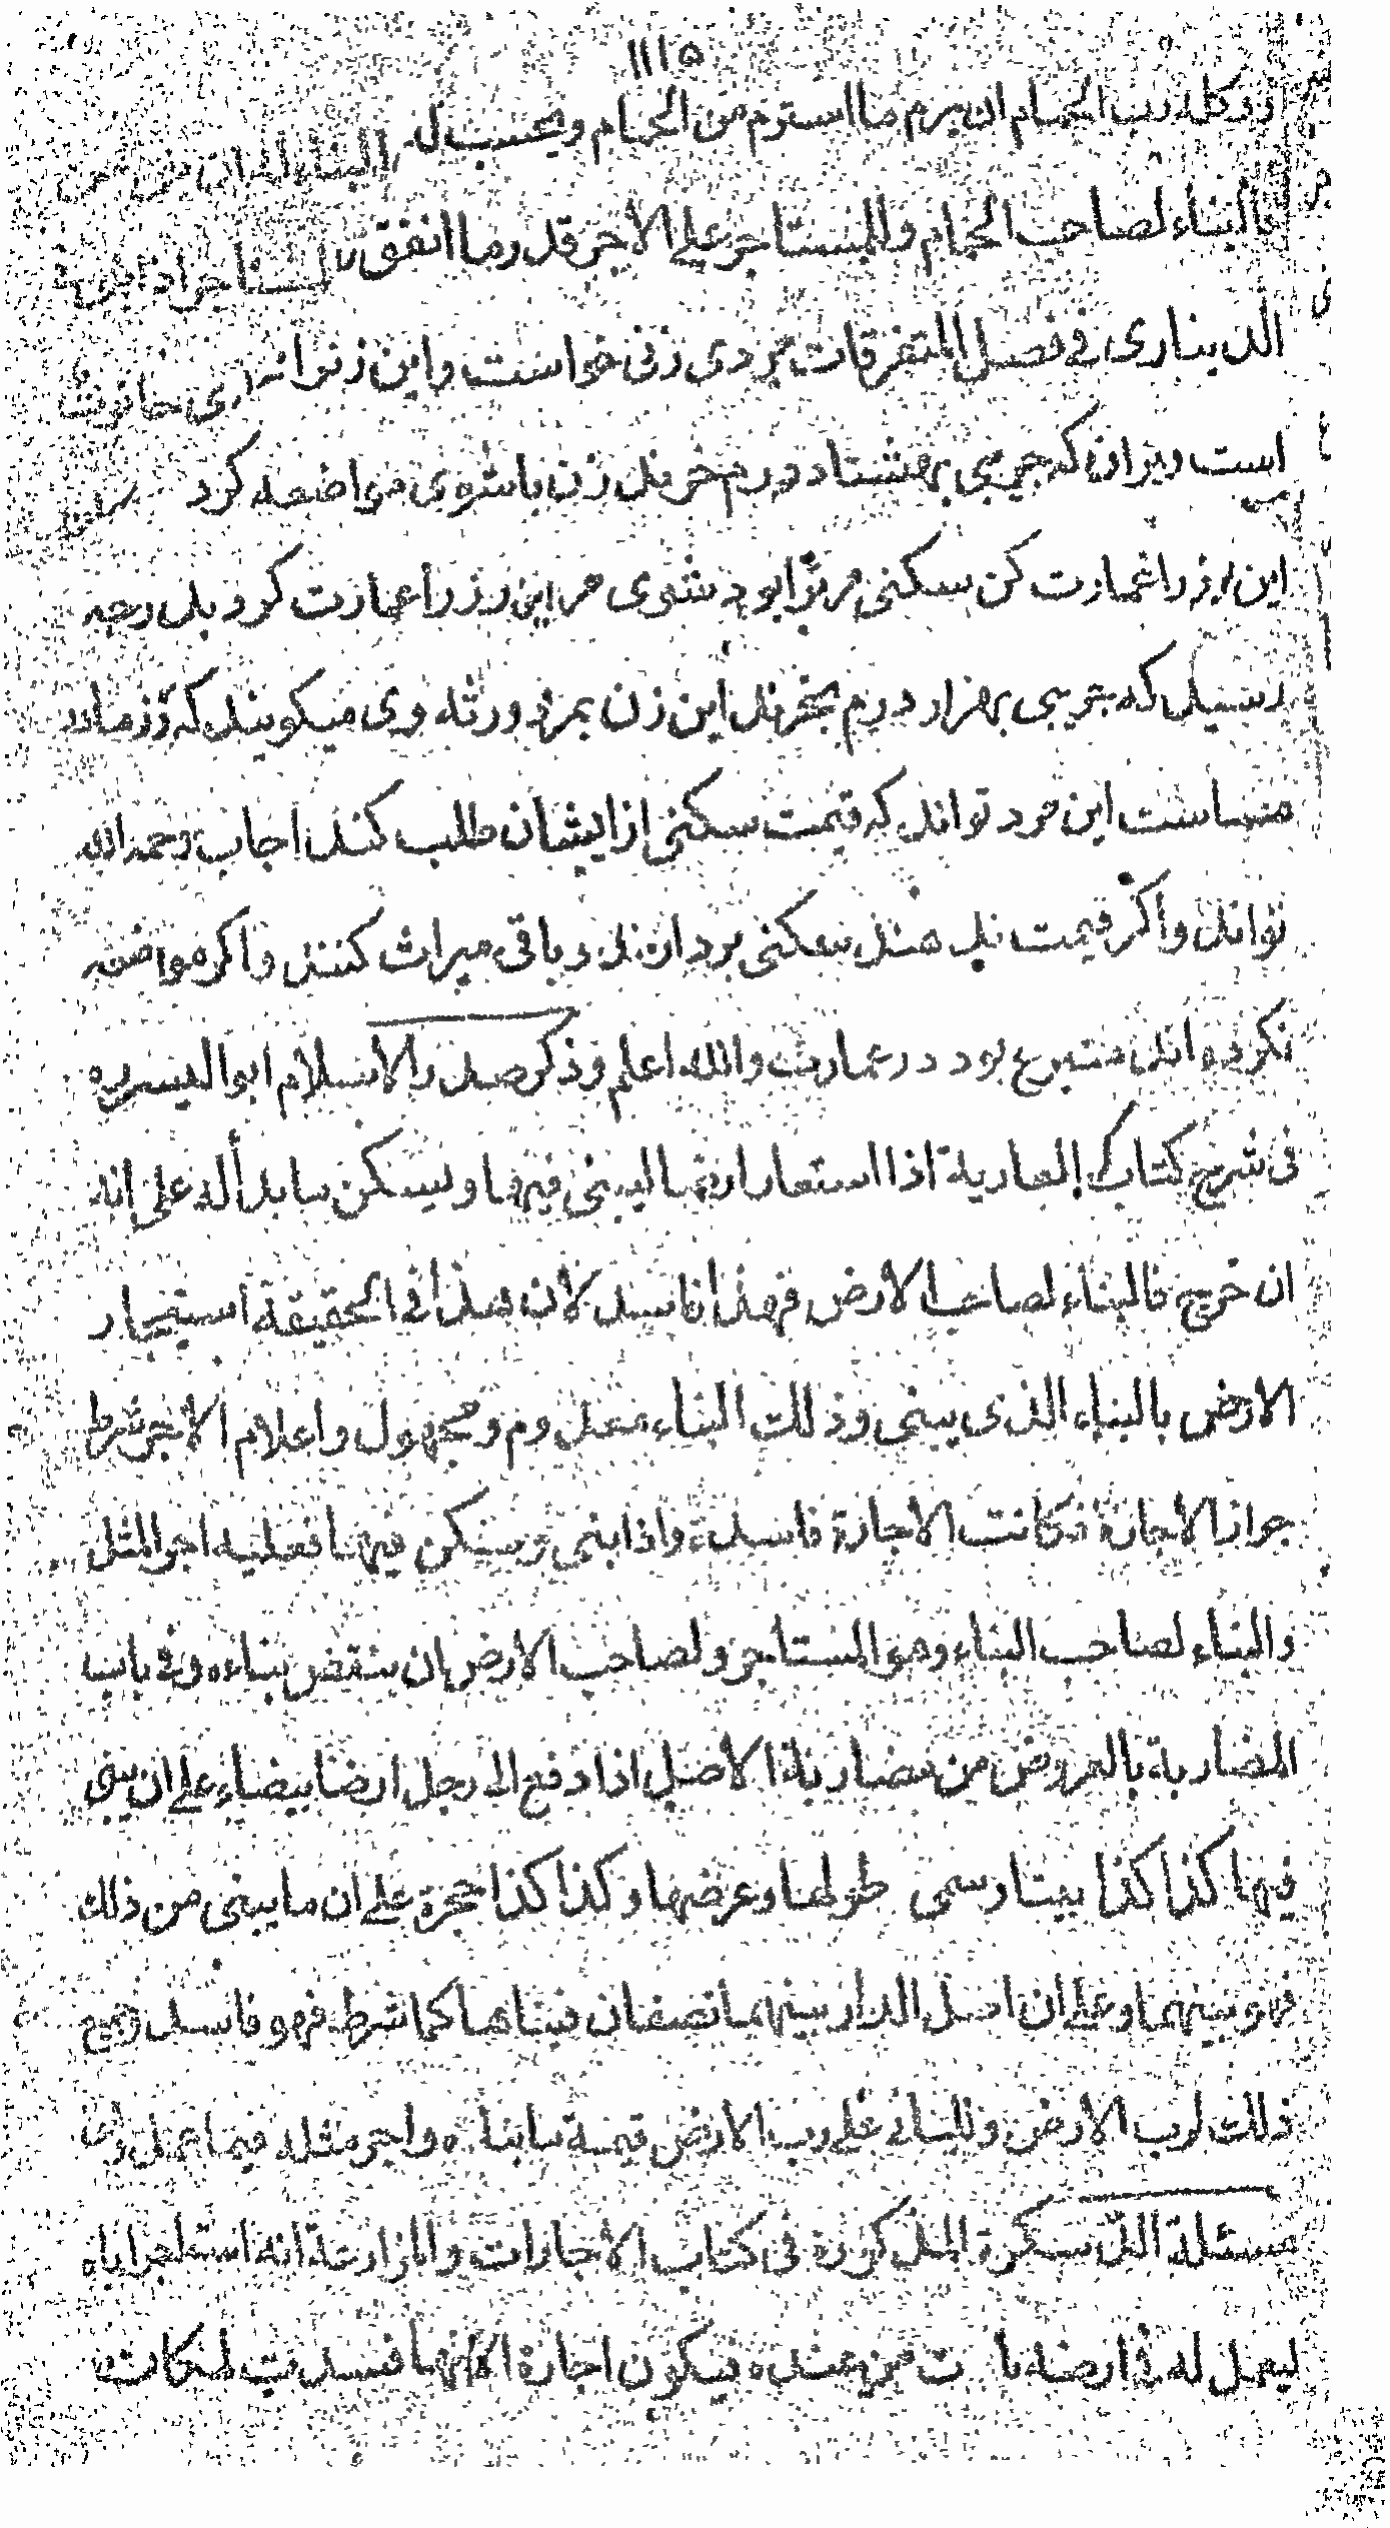 ١١١٥
او وكله رب الحمام ان يرم ما استرم من الحمام ويحسب له
فالبناء لصاحب الحمام وللمستاجر على الآجر قدر ما انفق
الديناري في فصل المتفرقات مردى زنى خواست واين زنرا
است ويران كه جريبى بهشتاد درم خرند زن باشوى مواضعه كرد
اين رز را عمارت كن سكنى مر ترا بود شوى مر اين رز را عمارت كرد بدرجه
رسيد كه جريبى بهزار درم بخرند اين زن بمرد ورثه وى ميكويند كه رز مادر
منساست اين مرد تواند كه قيمت سكنى از ايشان طلب كند اجاب رحمه الله
تواند واكر قيمت بدهند سكنى بردارند وباقى ميراث كنند واكر مواضعه
نكرده اند متبرع بود در عمارت والله اعلم وذكر صدر الاسلام ابو اليسر ره
فى شرح كتاب العارية اذا استعار ارضا ليبنى فيها ويسكن ما بدأ له على انه
ان خرج فالبناء لصاحب الارض فهذا فاسد لان هذا فى الحقيقة استيجار
الارض بالبناء الذى يبنى وذلك البناء معدوم ومجهول واعلام الاجر شرط
جواز الاجارة فكانت الاجارة فاسدة واذا بنى وسكن فيها فعليه اجر المثل
والبناء لصاحب البناء وهو المستاجر ولصاحب الارض ان ينقض بناءه وفى باب
المضاربة بالعروض من مضاربة الاصل اذا دفع الى رجل ارضا بيضاء على ان يبنى
فيها كذا كذا بيتا وسمى طولها وعرضها وكذا كذا حجرة على ان ما يبنى من ذلك
فهو بينهما وعلى ان اصل الدار بينهما نصفان فبناها كما شرط فهو فاسد وجميع
ذلك لرب الارض وللبانى على رب الارض قيمة ما بناه واجر مثله فيما عمل
مسئلة المذكورة فى كتاب الاجارات والمزارعة انه استاجر اياه
ليعمل له فى ارضه من عنده فيكون اجارة الا انها فسدت لمكان